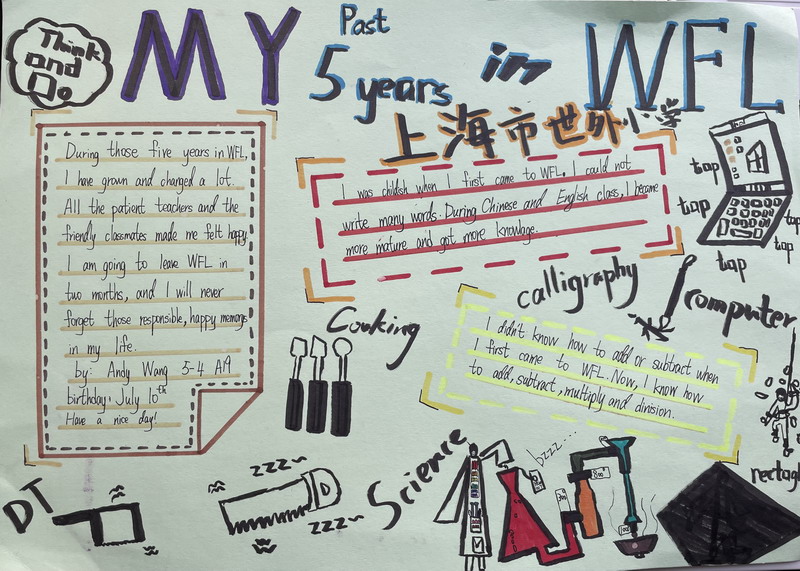 Think
and
Do
MY
Past
5 years
in
WFL
上海市世外小学
During those five years in WFL,
I have grown and changed a lot.
All the patient teachers and the
friendly classmates made me felt happy.
I am going to leave WFL in
two months, and I will never
forget those responsible, happy memorys
in my life.
by: Andy Wang 5-4 A19
birthday: July 10th
Have a nice day!
I was childish when I first came to WFL. I could not
write many words. During Chinese and English class, I became
more mature and got more knowlage.
tap
tap
tap
tap
tap
computer
calligraphy
Cooking
I didn't know how to add or subtract when
I first came to WFL. Now, I know how
to add, subtract, multiply and division.
DT
zzz~
zzz~
Science
bzzz...
rectag